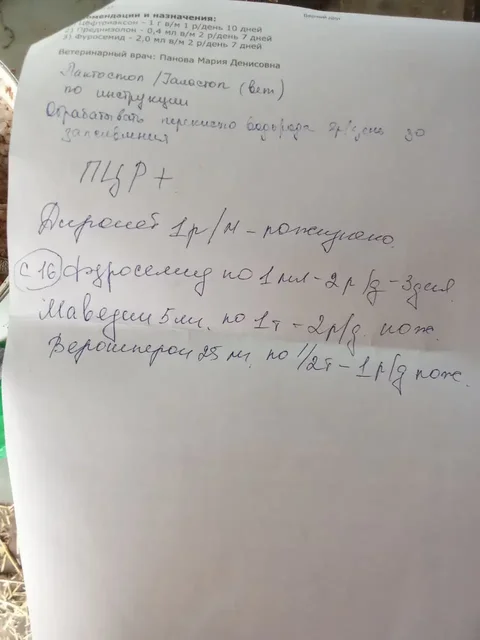 комендации и назначения:
Цефтриаксон - 1 г в/м 1 р/день 10 дней
2) Преднизолон - 0,4 мл в/м 2 р/день 7 дней
3) Фуросемид - 2,0 мл в/м 2 р/день 7 дней
Ветеринарный врач: Панова Мария Денисовна
Лактостоп / Галастоп (вет)
по инструкции
Обрабатывать перекисью водорода 2р/день до
заживления
ПЦР +
Диронет 1р/м - пожизненно.
с 16 Фуросемид по 1мл - 2р/д - 3 дня.
Ваведин 5мг. по 1т - 2р/д. пож.
Верошперон 25 мг. по 1/2т - 1р/д пож.